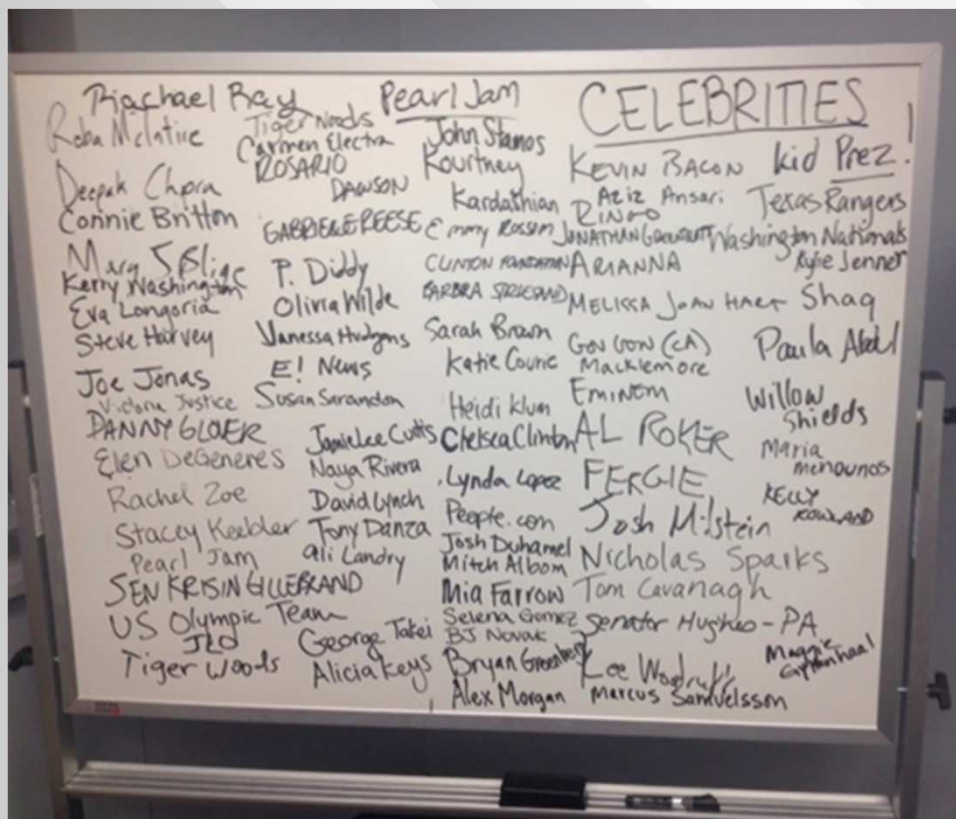 CELEBRITIES
Rachael Ray
Reba McIntire
Deepak Chpra
Connie Britton
Mary J Blige
Kerry Washington
Eva Longoria
Steve Harvey
Joe Jonas
Victoria Justice
DANNY GLOVER
Ellen DeGeneres
Rachel Zoe
Stacey Keebler
Pearl Jam
SEN KRISIN GILLEBRAND
US Olympic Team
JLO
Tiger Woods
Tiger Woods
Carmen Electra
ROSARIO
DAWSON
GABRIELLE REESE
P. Diddy
Olivia Wilde
Vanessa Hudgens
E! News
Susan Sarandon
Jamie Lee Curtis
Naya Rivera
David Lynch
Tony Danza
Ali Landry
George Takei
Alicia Keys
Pearl Jam
John Stamos
Kourtney
Kardashian
Emmy Rossum
CLINTON FOUNDATION
BARBRA STREISAND
Sarah Brown
Katie Couric
Heidi Klum
Chelsea Clinton
Lynda Lopez
People.com
Josh Duhamel
Mitch Albom
Mia Farrow
Selena Gomez
BJ Novak
Bryan Greenberg
Alex Morgan
KEVIN BACON
Aziz Ansari
RINGO
JONATHAN
ARIANNA
MELISSA JOAN HART
Gov (CA)
Macklemore
EMINEM
AL ROKER
FERGIE
Josh Milstein
Nicholas Sparks
Tom Cavanagh
Senator Hughes - PA
Lee Woodruff
Marcus Samuelsson
Kid Prez!
Texas Rangers
Washington Nationals
Kylie Jenner
Shaq
Paula Abdul
Willow
Shields
Maria
menounos
KELLY
ROWLAND
Maggie
Gyllenhaal